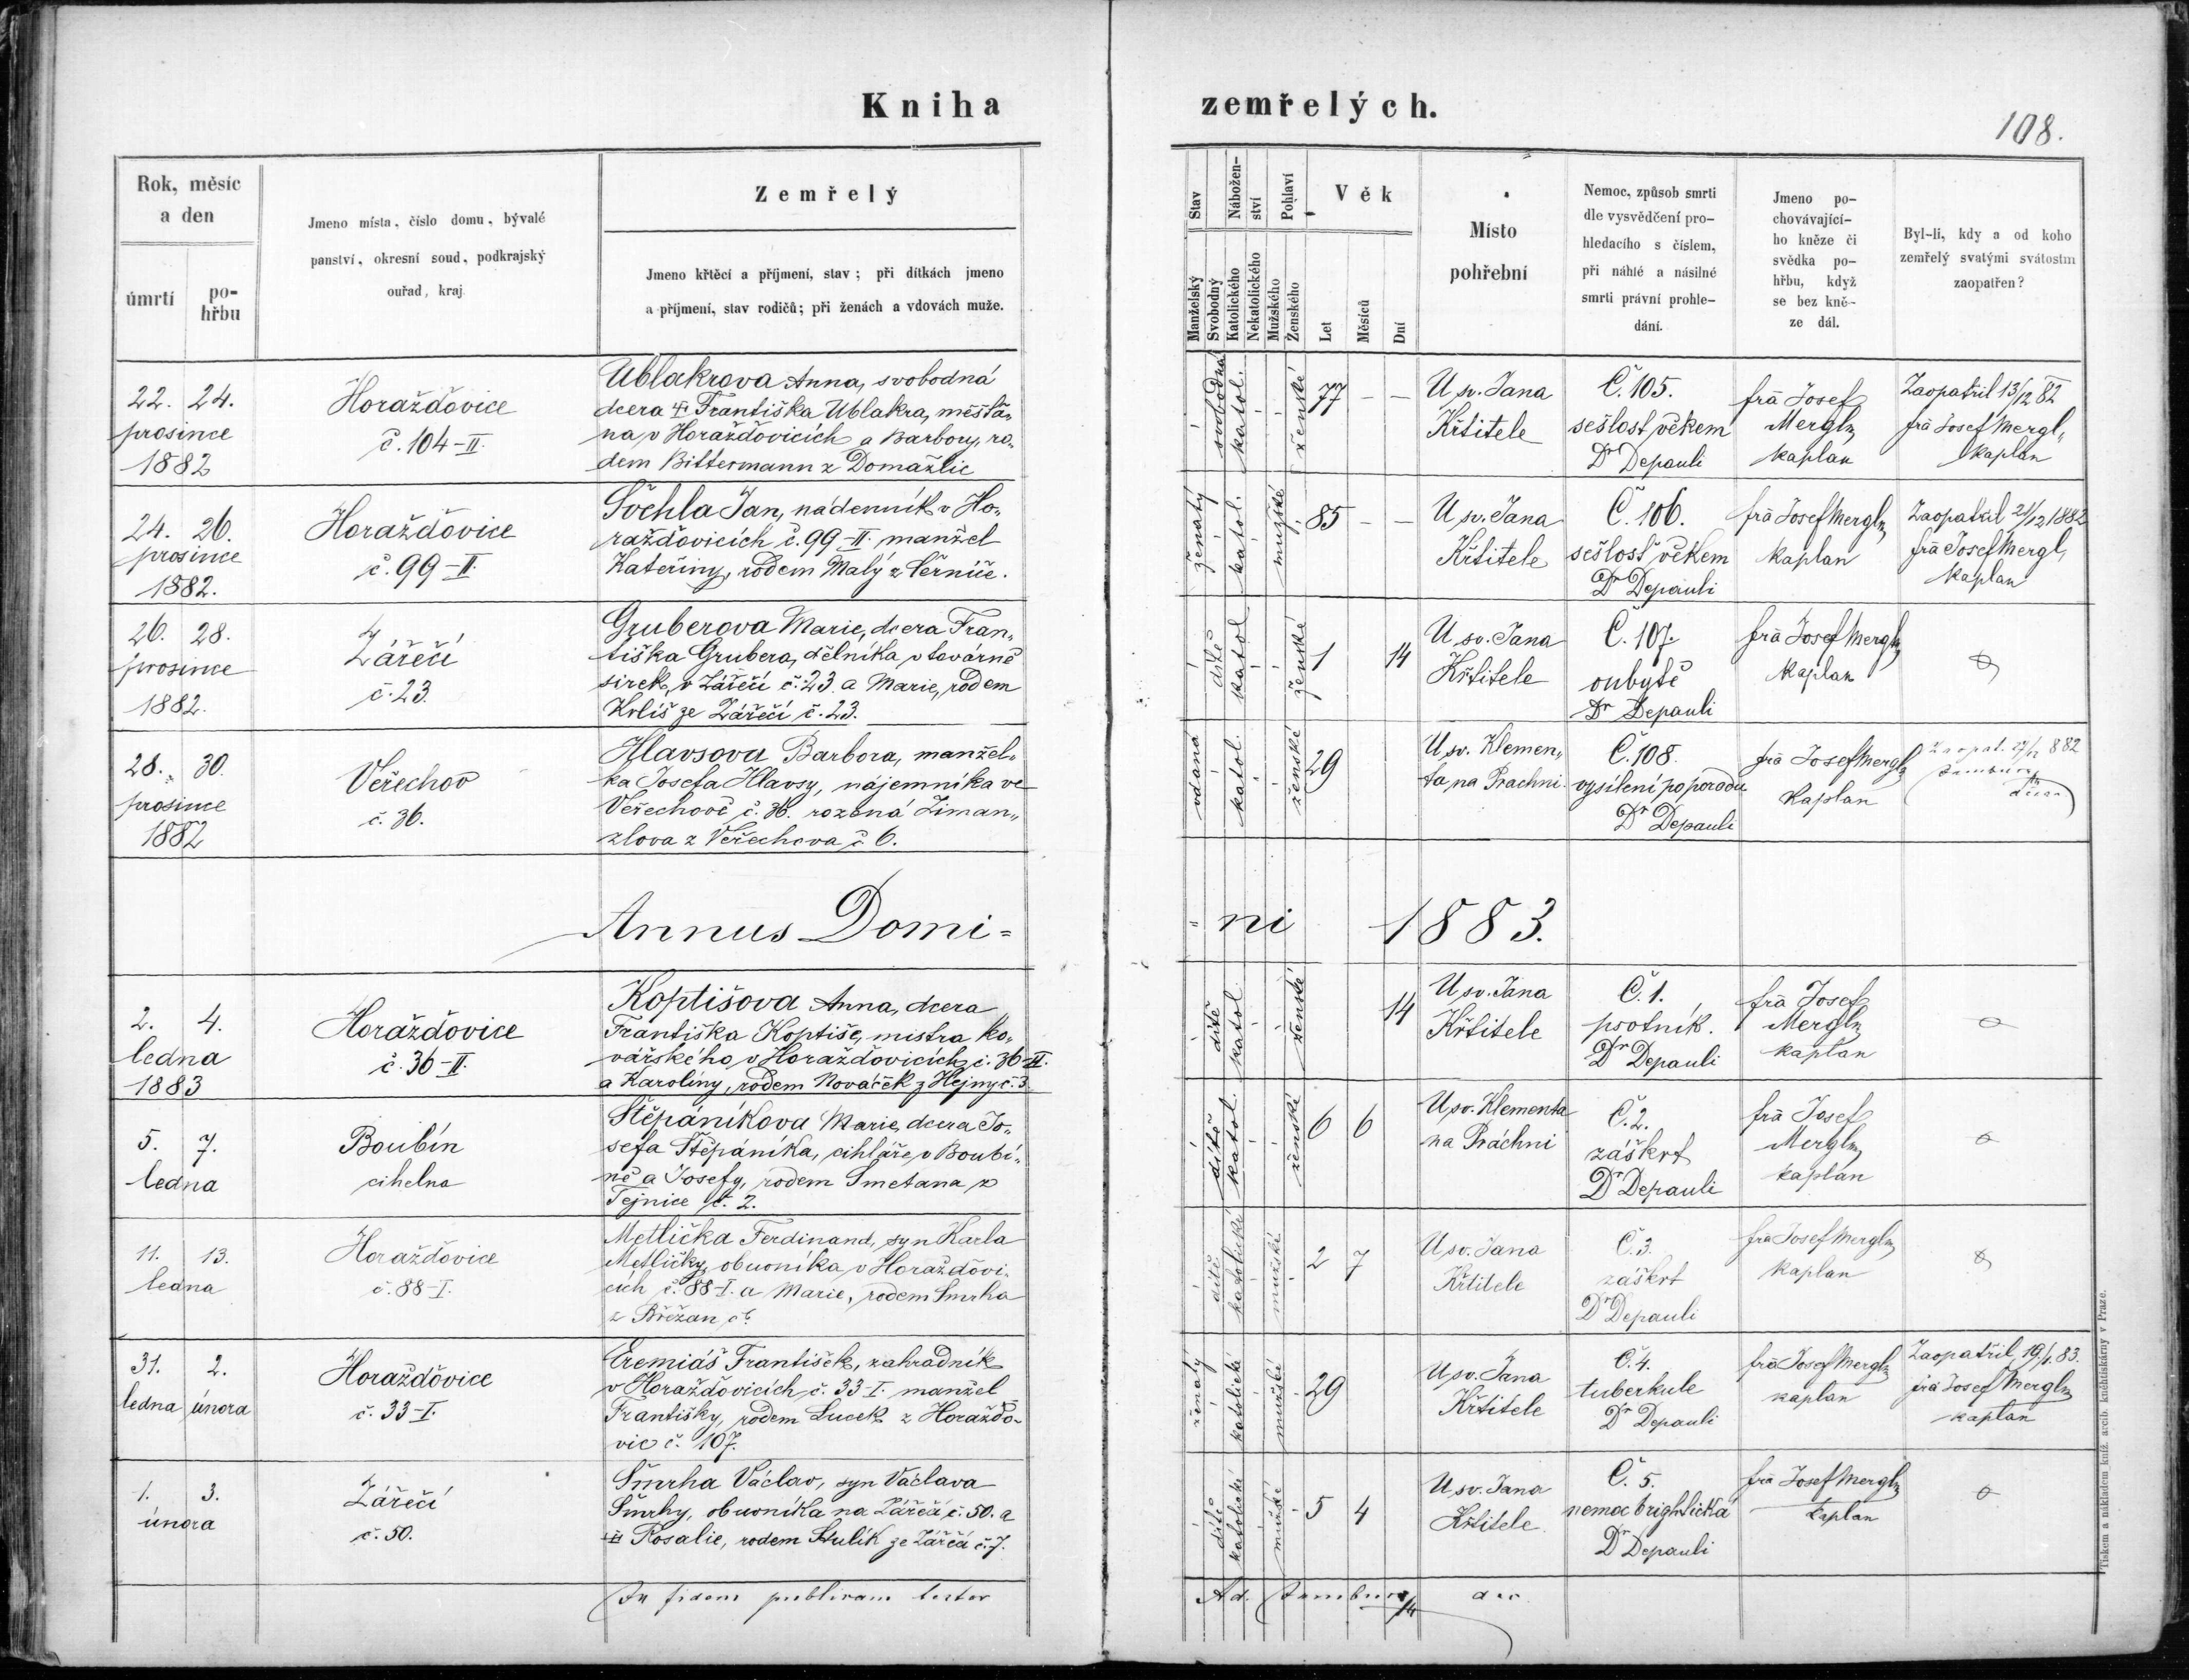 Kniha zemřelých.
108.
Rok, měsíc
a den
úmrtí
po-
hřbu
Jmeno místa, číslo domu, bývalé
panství, okresní soud, podkrajský
ouřad, kraj.
Zemřelý
Jmeno křtěcí a příjmení, stav; při dítkách jmeno
a příjmení, stav rodičů; při ženách a vdovách muže.
Stav
Manželský
Svobodný
Nábožen-
ství
Katolického
Nekatolického
Pohlaví
Mužského
Ženského
Věk
Let
Měsíců
Dní
Místo
pohřební
Nemoc, způsob smrti
dle vysvědčení pro-
hledacího s číslem,
při náhlé a násilné
smrti právní prohle-
dání.
Jmeno po-
chovávající-
ho kněze či
svědka po-
hřbu, když
se bez kně-
ze dál.
Byl-li, kdy a od koho
zemřelý svatými svátostmi
zaopatřen?
22. 24.
prosince
1882
Horažďovice
č. 104-II.
Ublakrova Anna, svobodná
dcera † Františka Ublakra, měšťa-
na v Horažďovicích a Barbory, ro-
dem Bittermann z Domažlic
svobodná
katol.
ženské
77 – –
U sv. Jana
Křtitele
Č. 105.
sešlost věkem
Dr Depauli
frä Josef
Mergl
kaplan
Zaopatřil 13/12 82
frä Josef Mergl,
kaplan
24. 26.
prosince
1882.
Horažďovice
č. 99-II.
Švehla Jan, nádenník v Ho-
ražďovicích č. 99-II. manžel
Kateřiny, rodem Malý z Černíče.
ženatý
katol.
mužské
85 – –
U sv. Jana
Křtitele
Č. 106.
sešlosť věkem
Dr Depauli
frä Josef Mergl
kaplan
Zaopatřil 21/12 1882
frä Josef Mergl,
kaplan
26. 28.
prosince
1882.
Zářečí
č. 23.
Gruberova Marie, dcera Fran-
tiška Grubera, dělníka v továrně
sirek, v Zářečí č. 23. a Marie, rodem
Krliš ze Zářečí č. 23.
dítě
katol
ženské
1 14
U sv. Jana
Křtitele
Č. 107.
oubytě
Dr Depauli
frä Josef Mergl
kaplan
28. 30.
prosince
1882
Veřechov
č. 36.
Hlavsova Barbora, manžel-
ka Josefa Hlavsy, nájemníka ve
Veřechově č. 36. rozená Ziman-
zlova z Veřechova č 6.
vdaná
katol.
ženské
29
U sv. Klemen-
ta na Prachni.
Č. 108.
vysílení po porodu
Dr Depauli
frä Josef Mergl
Kaplan
Zaopat. 882
děkan
Annus Domi-
ni 1883.
2. 4.
ledna
1883
Horažďovice
č. 36-II.
Koptišova Anna, dcera
Františka Koptiše, mistra ko-
vářského v Horažďovicích č. 36-II.
a Karoliny, rodem Nováček z Hejny č. 3.
dítě
katol.
ženské
14
U sv. Jana
Křtitele
Č. 1.
psotník.
Dr Depauli
frä Josef
Mergl
kaplan
5. 7.
ledna
Boubín
cihelna
Štěpáníkova Marie, dcera Jo-
sefa Štěpáníka, cihláře v Boubí-
ně a Josefy, rodem Smetana z
Tejnice č. 2.
dítě
katol.
ženské
6 6
U sv. Klementa
na Práchni
Č. 2.
záškrt
Dr Depauli
frä Josef
Mergl
kaplan
11. 13.
ledna
Horažďovice
č. 88-I.
Metlička Ferdinand, syn Karla
Metličky, obuvníka v Horažďovi-
cích č. 88-I. a Marie, rodem Smrha
z Břežan č.
dítě
katolické
mužské
2 7
U sv. Jana
Křtitele
Č. 3.
záškrt
Dr Depauli
fra Josef Mergl
kaplan
31. 2.
ledna února
Horažďovice
č. 33-I.
Eremiáš František, zahradník
v Horažďovicích č. 33-I. manžel
Františky, rodem Lucek z Horažďo-
vic č. 107.
ženatý
katolické
mužské
29
U sv. Jana
Křtitele
Č. 4.
tuberkule
Dr Depauli
frä Josef Mergl
kaplan
Zaopatřil 19/1. 83.
frä Josef Mergl
kaplan
1. 3.
února
Zářečí
č. 50.
Šmrha Václav, syn Václava
Šmrhy, obuvníka na Zářečí č. 50. a
† Rosalie, rodem Stulík ze Zářečí č. 7.
dítě
katolické
mužské
5 4
U sv. Jana
Křtitele.
Č. 5.
nemoc brightická
Dr Depauli
frä Josef Mergl
kaplan
In fidem publicam testor
Ad.
Tiskem a nákladem kníž. arcib. kněhtiskárny v Praze.